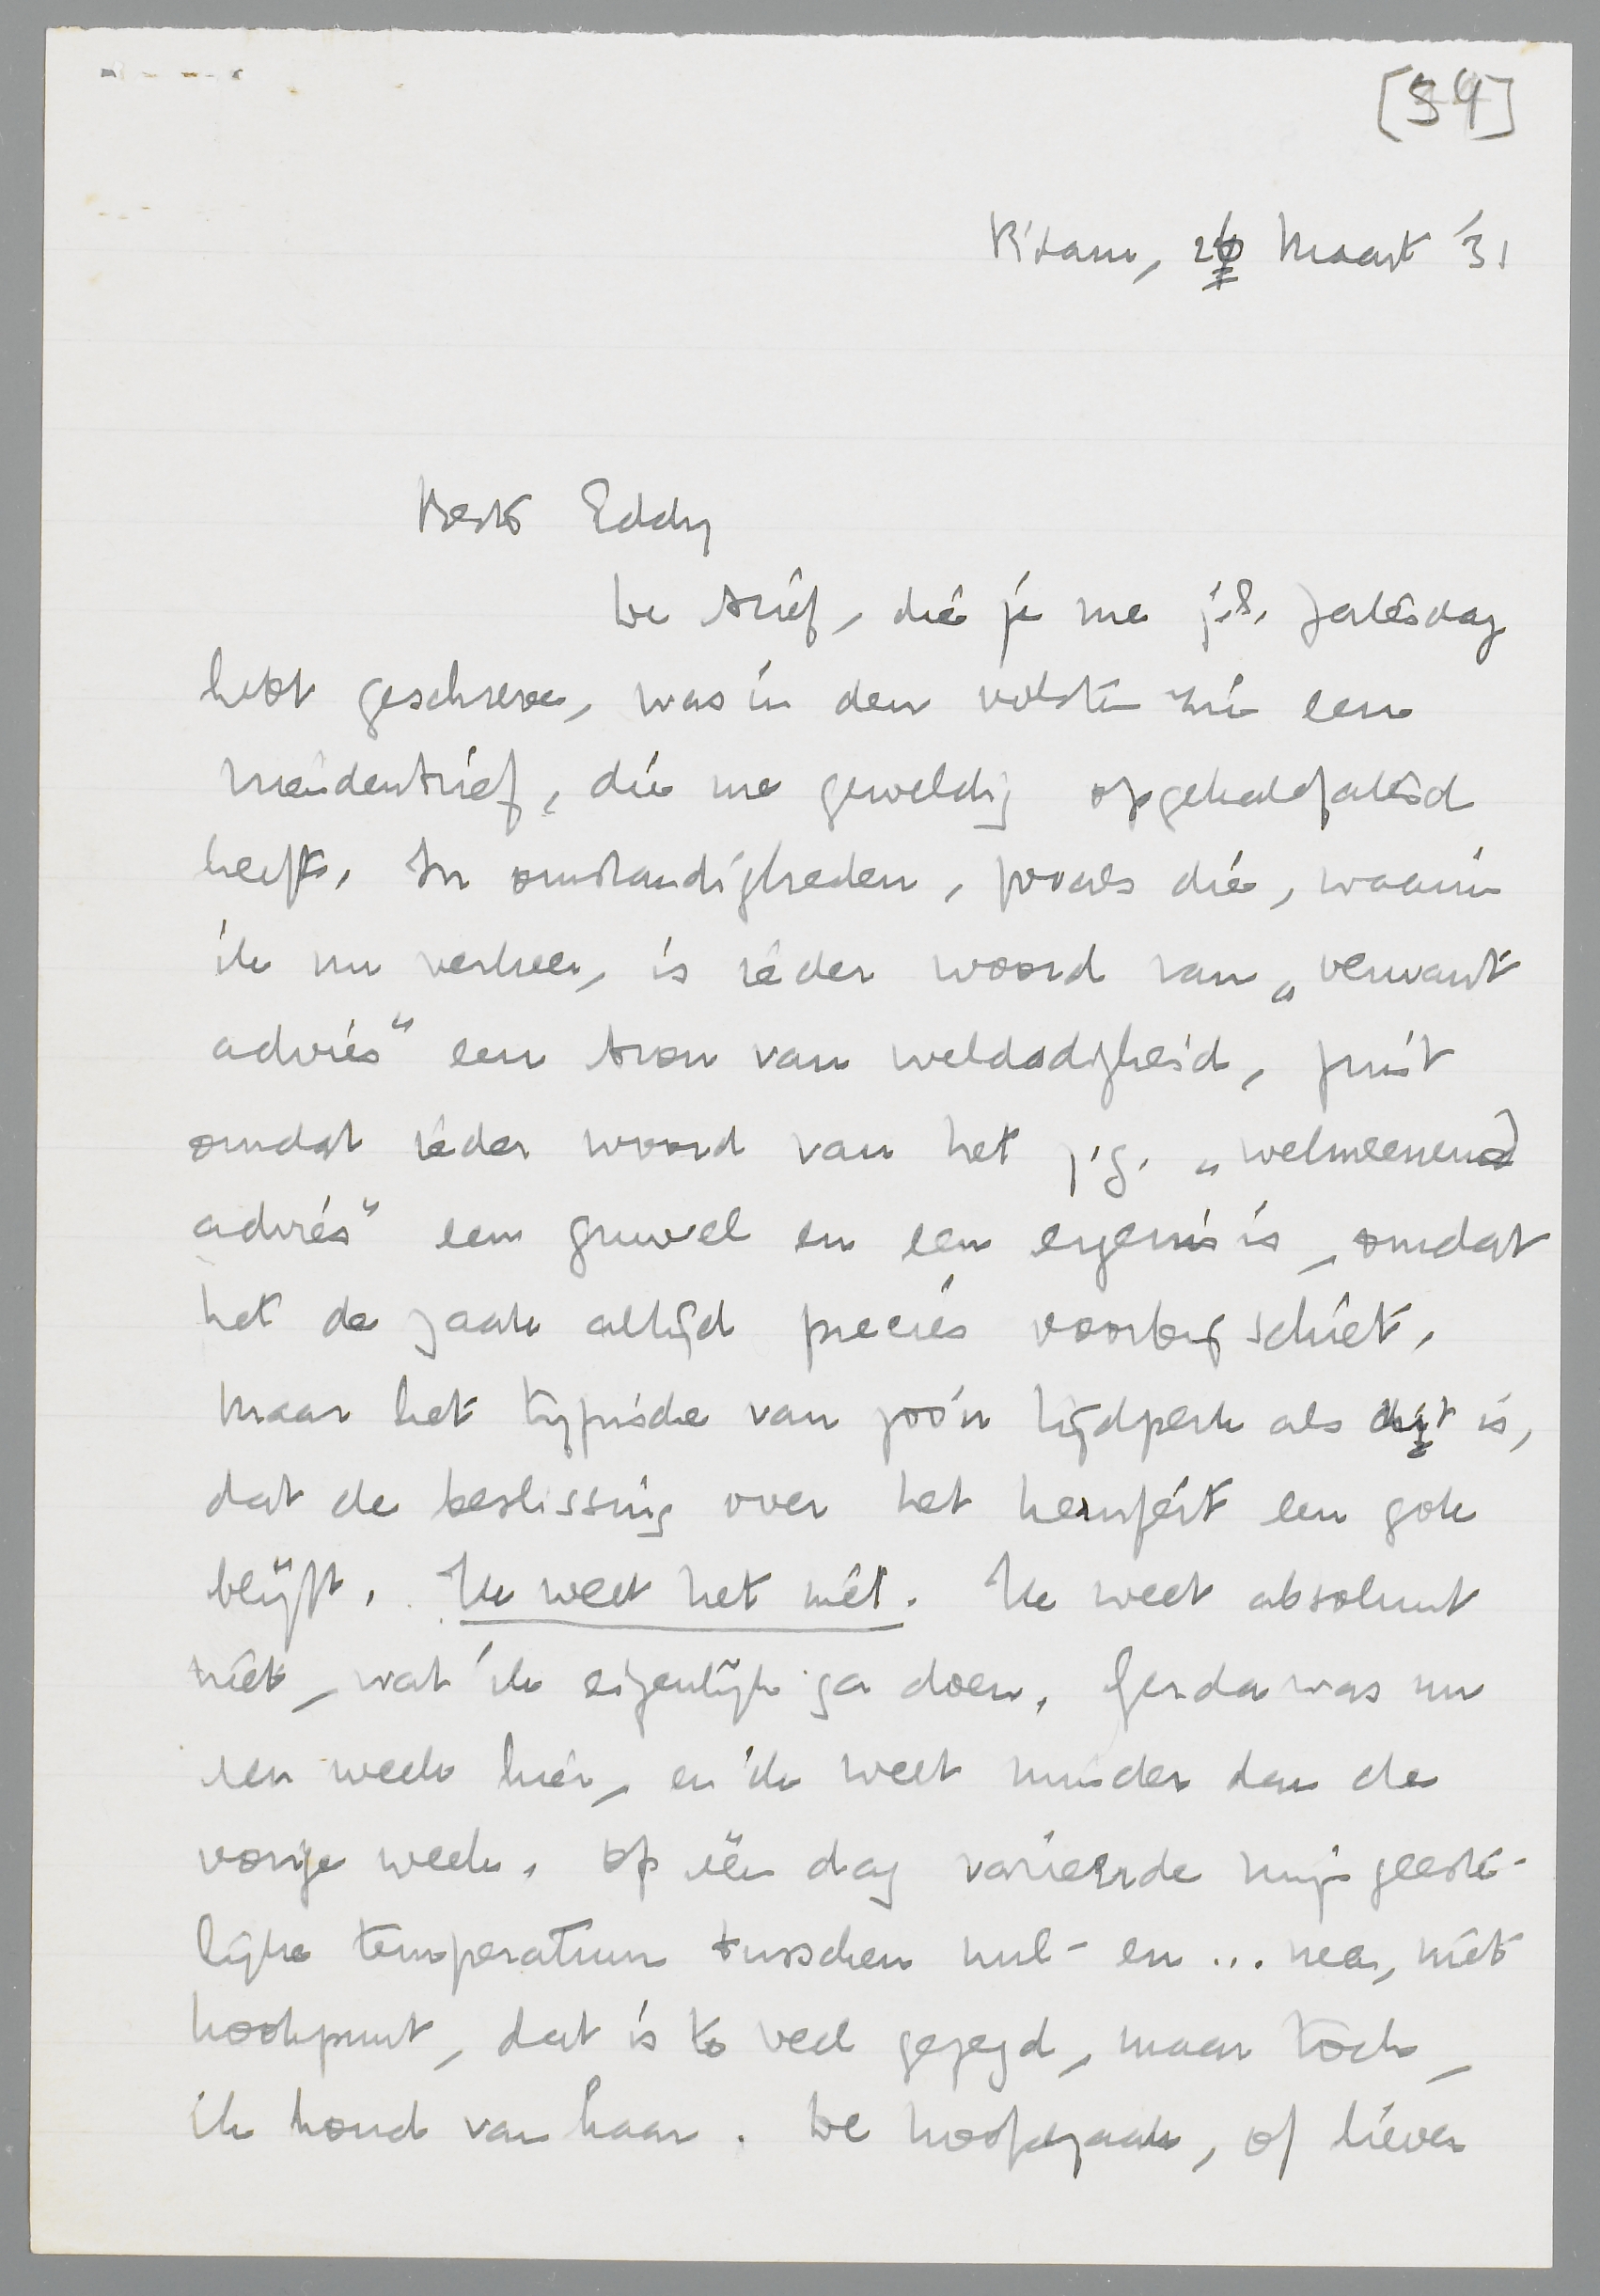 [34]
R'dam, 26 Maart '31
Beste Eddy
De brief, die je me j.l. Zaterdag
hebt geschreven, was in den volsten zin een
vriendenbrief, die me geweldig opgekalefaterd
heeft. In omstandigheden, zooals die, waarin
ik nu verkeer, is ieder woord van „verwant
advies” een bron van weldadigheid, juist
omdat ieder woord van het z.g. „welmeenend
advies” een gruwel en een ergernis is, omdat
het de zaak altijd precies voorbij schiet.
Maar het typische van zoo'n tijdperk als dit is,
dat de beslissing over het kernfeit een gok
blijft. Ik weet het niet. Ik weet absoluut
niet, wat ik eigenlijk ga doen. Gerda was nu
een week hier, en ik weet minder dan de
vorige week. Op één dag varieerde mijn geeste-
lijke temperatuur tusschen nul- en ... nee, niet
kookpunt, dat is te veel gezegd, maar toch,
ik houd van haar. De hoofdzaak, of liever